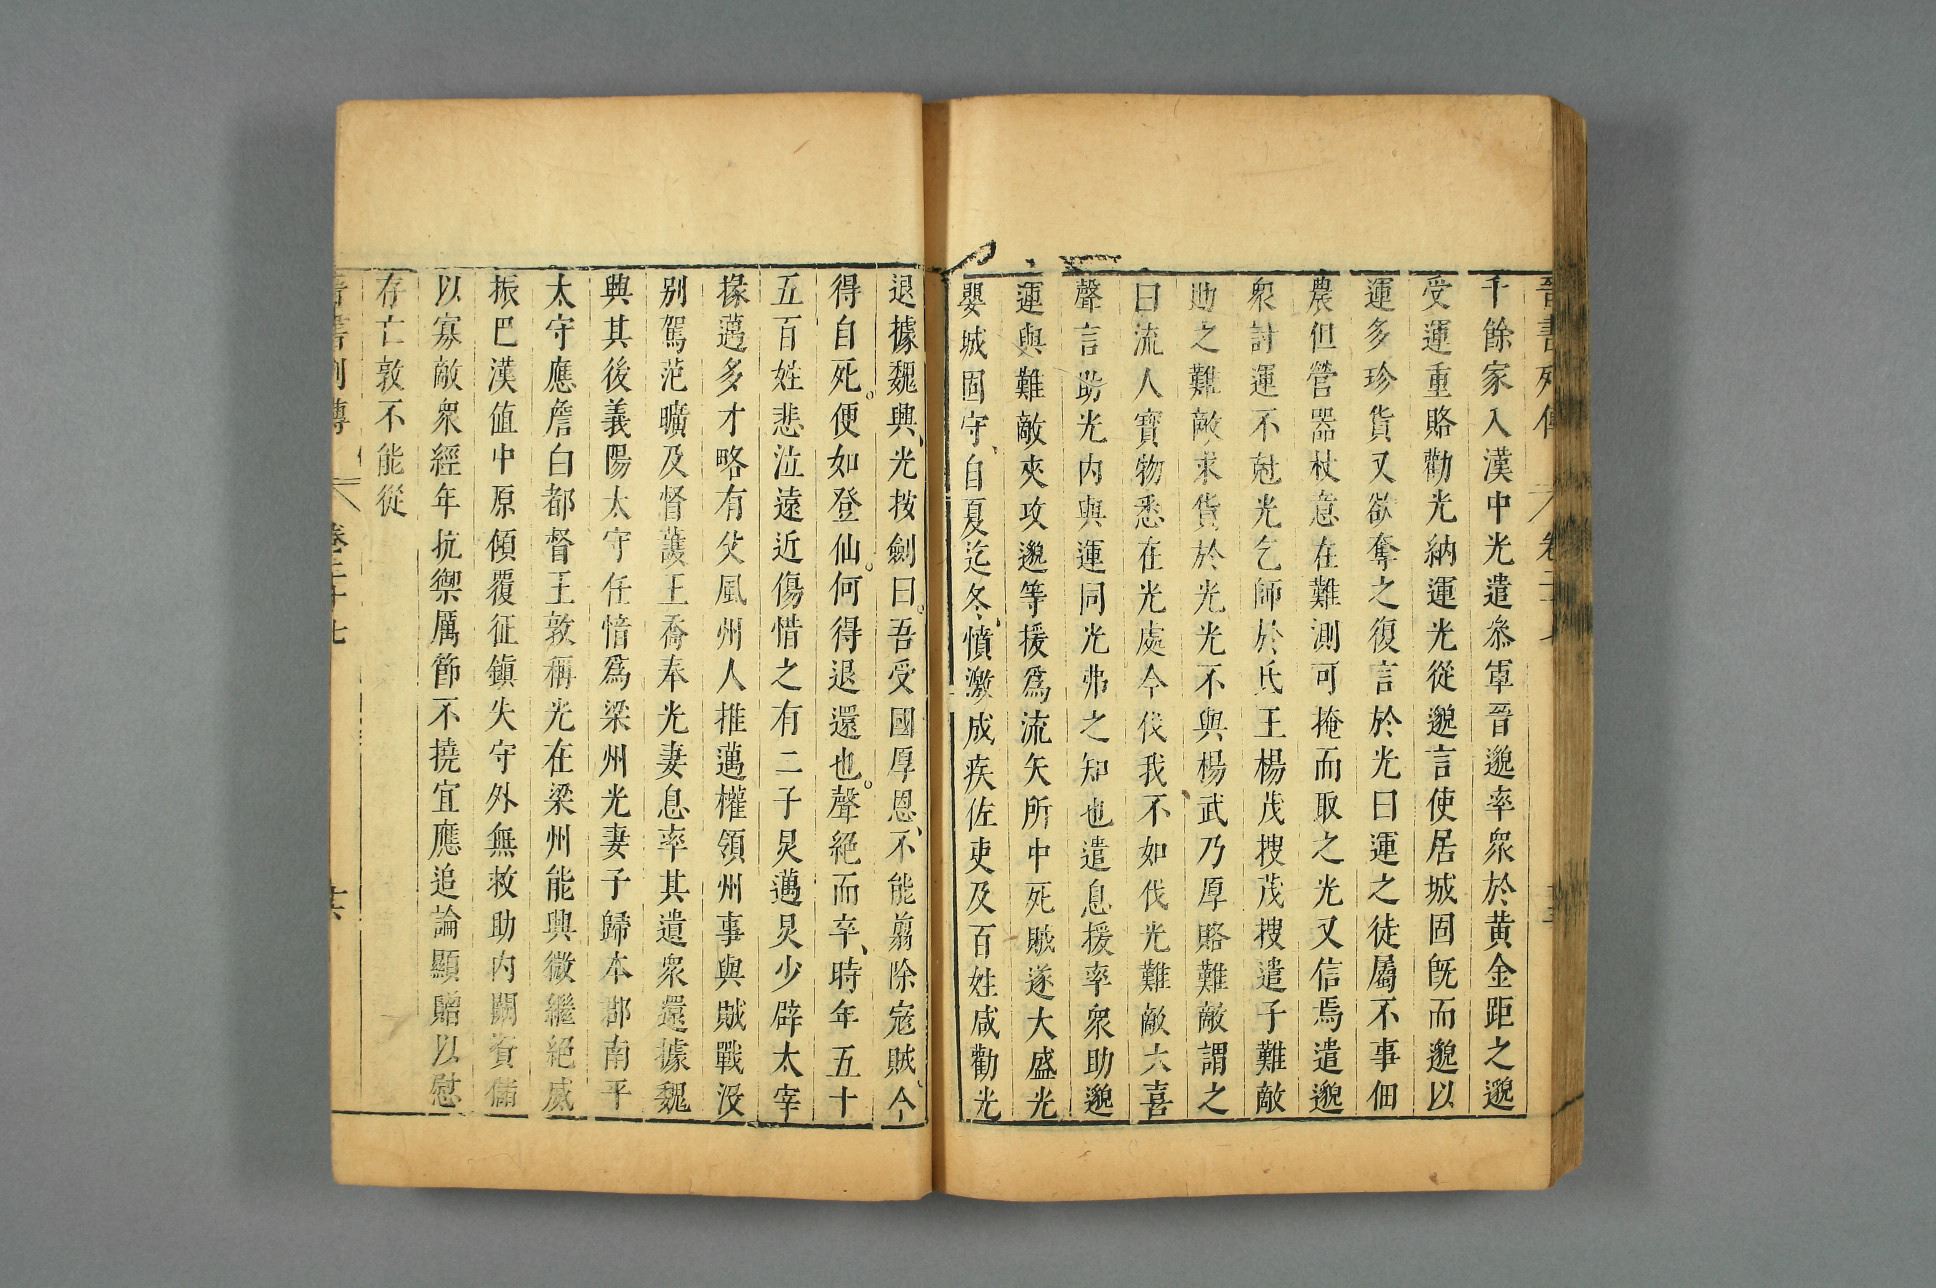 晉書列傳 卷二十七
千餘家入漢中光遣叅軍晉邈率衆於黄金距之邈
受運重賂勸光納運光從邈言使居城固旣而邈以
運多珍貨又欲奪之復言於光曰運之徒屬不事佃
農但營器杖意在難測可掩而取之光又信焉遣邈
衆討運不尅光乞師於氐王楊茂搜茂搜遣子難敵
助之難敵求貨於光光不與楊武乃厚賂難敵謂之
曰流人寶物悉在光處今伐我不如伐光難敵大喜
聲言助光内與運同光弗之知也遣息援率衆助邈
運與難敵夾攻邈等援爲流矢所中死賊遂大盛光
嬰城固守、自夏迄冬、憤激成疾佐吏及百姓咸勸光
退據魏興、光按劍曰。吾受國厚恩、不能翦除寇賊、今
得自死。便如登仙。何得退還也。聲絕而卒、時年五十
五百姓悲泣遠近傷惜之有二子炅邁炅少辟太宰
掾邁多才略有父風州人推邁權領州事與賊戰没
别駕范曠及督護王喬奉光妻息率其遺衆還據魏
興其後義陽太守任愔爲梁州光妻子歸本郡南平
太守應詹白都督王敦稱光在梁州能興微繼絕威
振巴漢值中原傾覆征鎮失守外無救助内闕資儲
以寡敵衆經年抗禦厲節不撓宜應追論顯贈以慰
存亡敦不能從
晉書列傳 卷二十七 十六